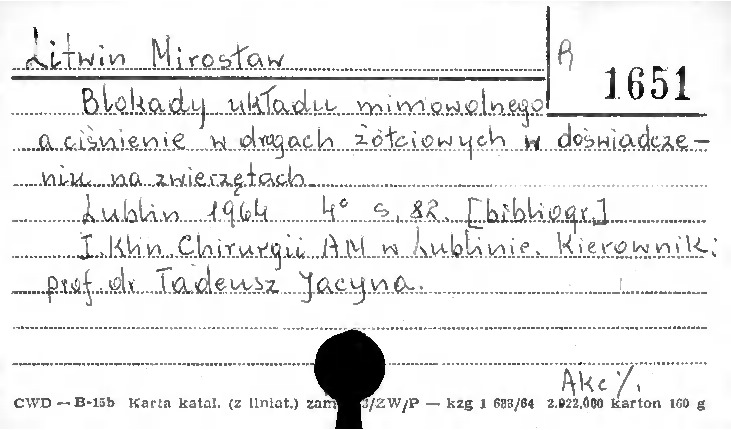 Litwin Mirosław
R 1651
Blokady układu mimowolnego
a ciśnienie w drogach żółciowych w doświadcze-
niu na zwierzętach.
Lublin 1964 4° s. 82. [bibliogr.]
I. Klin. Chirurgii AM w Lublinie. Kierownik:
prof. dr Tadeusz Jacyna.
Akc %.
CWD — B-15b Karta katal. (z liniat.) zam. /ZW/P — kzg 1 688/64 2.922,000 Karton 160 g